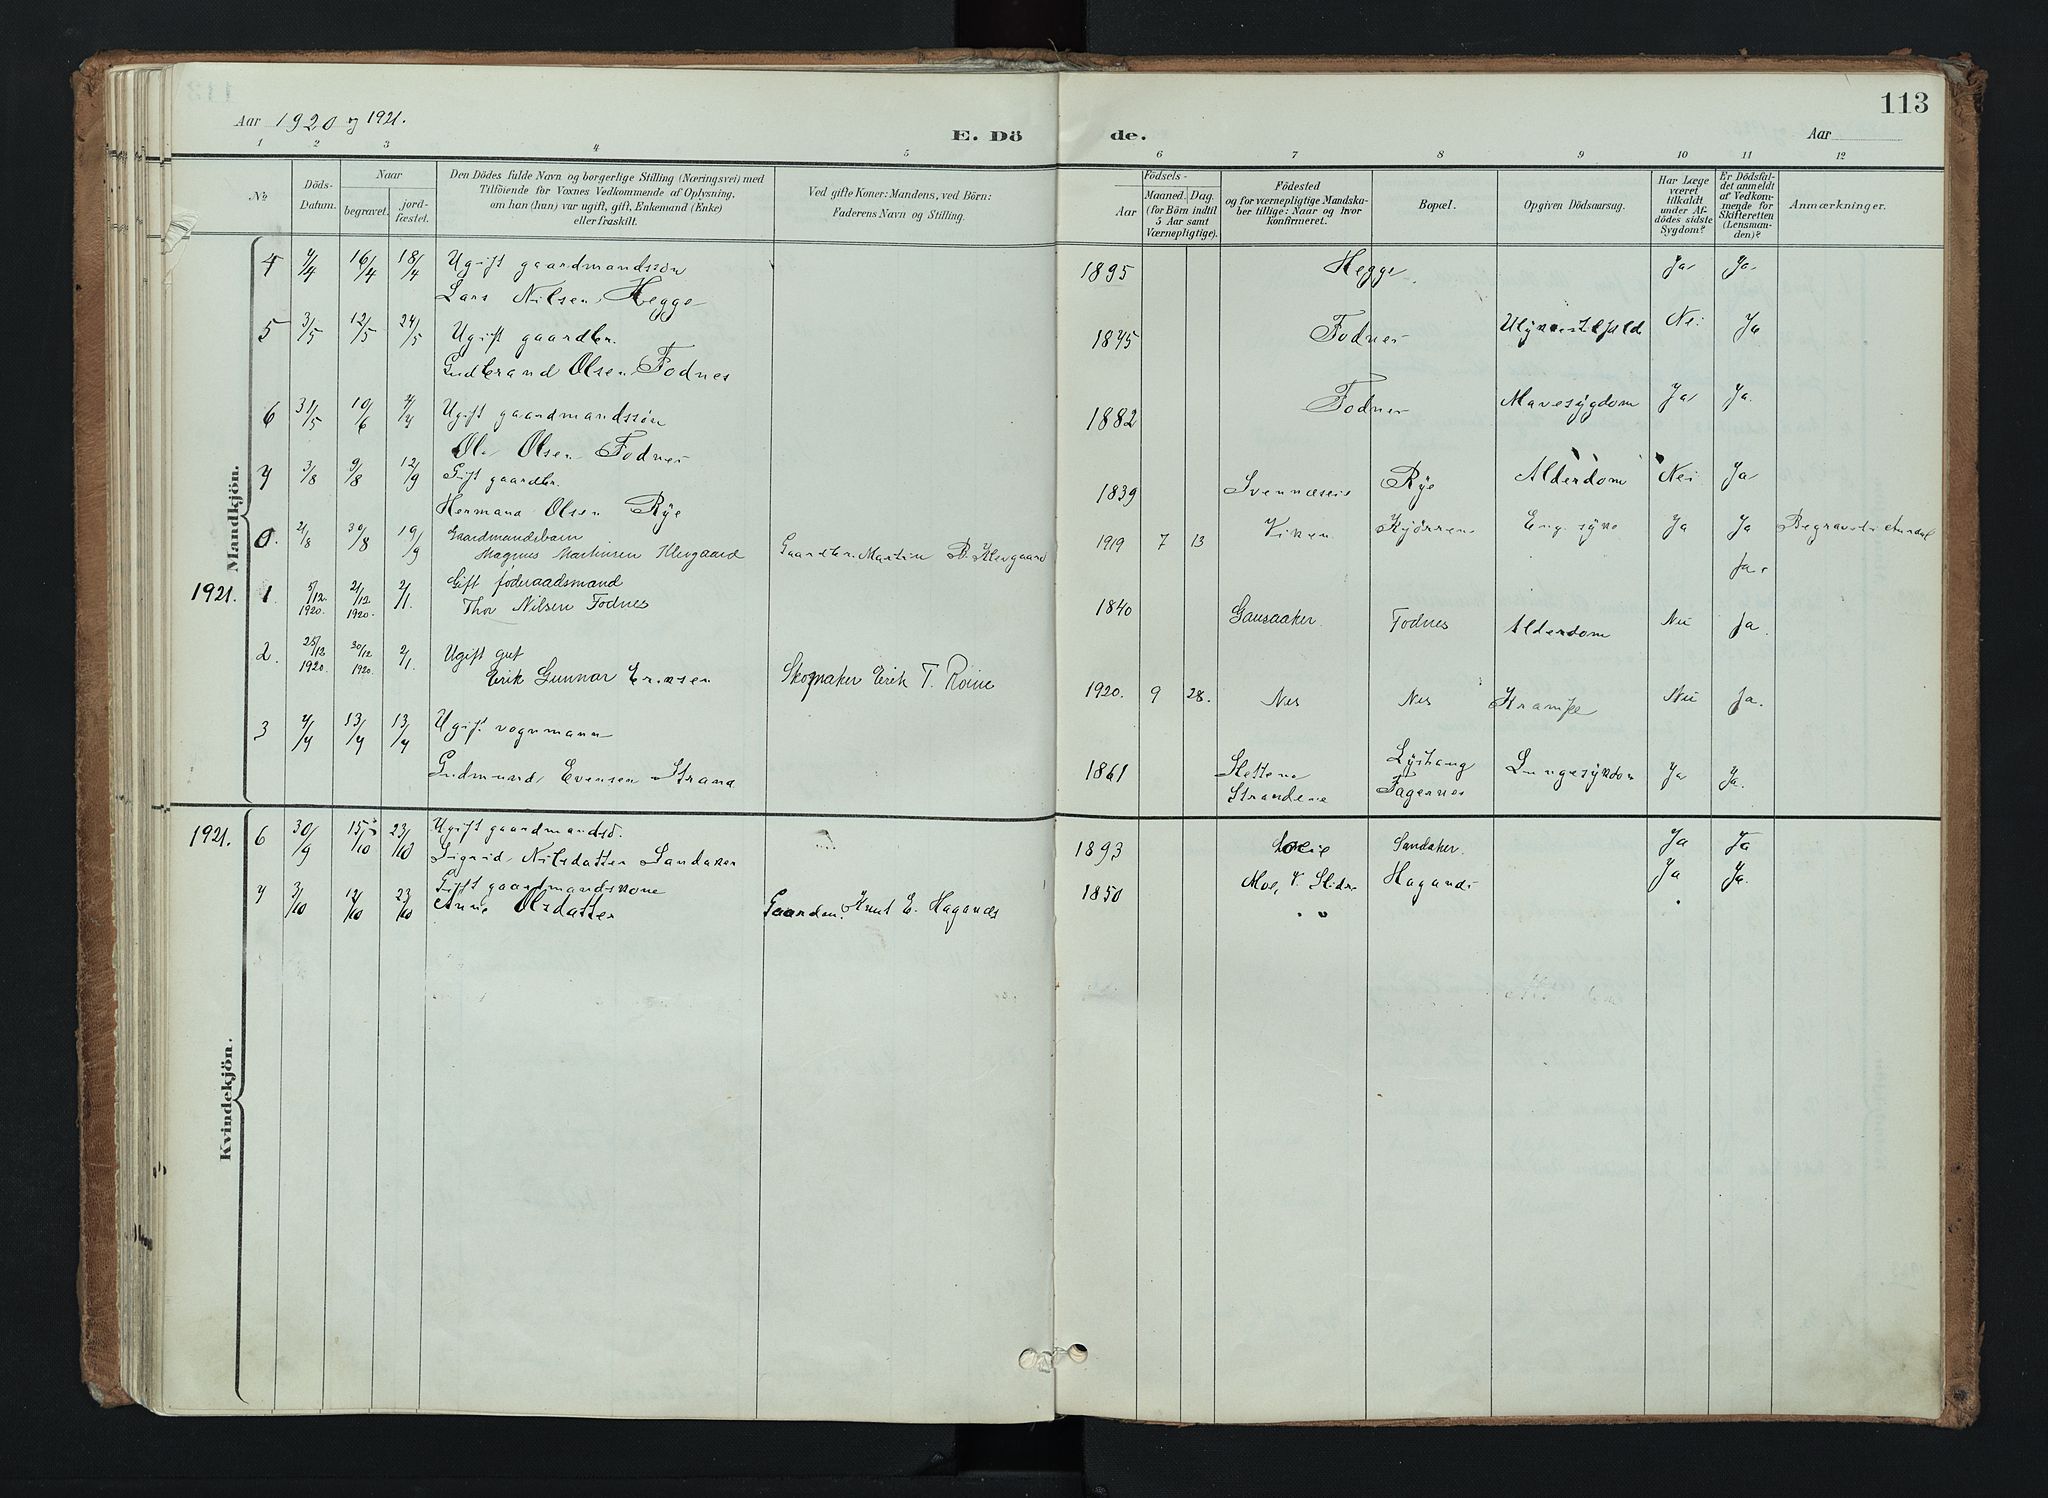 113
Aar 1920 og 1921.
E. Dö
de.
Aar
1 2 3 4 5 6 7 8 9 10 11 12
No.
Döds-Datum.
Naar
begravet.
jord-fæstet.
Den Dödes fulde Navn og borgerlige Stilling (Næringsvei) med
Tilföiende for Voxnes Vedkommende af Oplysning,
om han (hun) var ugift, gift, Enkemand (Enke)
eller fraskilt.
Ved gifte Koner: Mandens, ved Börn:
Faderens Navn og Stilling.
Födsels-
Aar
Maaned. Dag.
(for Börn indtil
5 Aar samt
Værnepligtige).
Födested
og for værnepligtige Mandska-
ber tillige: Naar og hvor
konfirmeret.
Bopæl.
Opgiven Dödsaarsag.
Har Læge
været
tilkaldt
under Af-
dödes sidste
Sygdom?
Er Dödsfal-
det anmeldt
af Vedkom-
mende for
Skifteretten
(Lensman-
den)?
Anmærkninger.
Mandkjön.
4 16/4 18/4 Ugift gaardmandssön 1895 Hegge Ja Ja
Lars Nilsen Hegge
5 3/5 12/5 24/5 Ugift gaardbr. 1845 Fodnes Nei Ja
Gudbrand Olsen Fodnes
6 31/5 10/6 Ugift gaardmandssön 1882 Fodnes Mavesygdom Ja Ja.
Ole Olsen Fodnes
7 3/8 9/8 12/9 Gift gaardbr. 1839 Rye Alderdom Nei Ja
Hermand Olsen Rye
21/8 30/8 19/9 Gaardmandsbarn
Magnus Martinsen Klevgaard Gaardbr. Martin Klevgaard 1919 7 13 Viken Ja Ja
Ja.
1921. 1. 5/12 1920 21/12 1920. 2/1. Gift föderaadsmand
Thor Nilsen Fodnes 1840 Gausaaker. Fodnes Alderdom Nei Ja.
2. 25/12 1920. 30/12 1920. 2/1. Ugift gut
Erik Gunnar Eriksen Skomaker Erik T. Roine 1920. 9 28. Nes Nes Krampe Nei Ja.
3 13/4 13/4 Ugift vognmann
Gudmund Evensen Strand 1861 Slettene Lystang Lungesykdom Ja Ja.
Strandene Fagernes
Kvindekjön.
1921. 6 30/9 15/10 23/10 Ugift gaardmandsd. 1893 Sandaker. Ja Ja
Sigrid Nilsdatter Sandaker
7 3/10 12/10 23/10 Gift gaardmandskone 1850 Moe, V. Slidre Ja Ja.
Anne Olsdatter Gaardm. Knut E. Haganæs